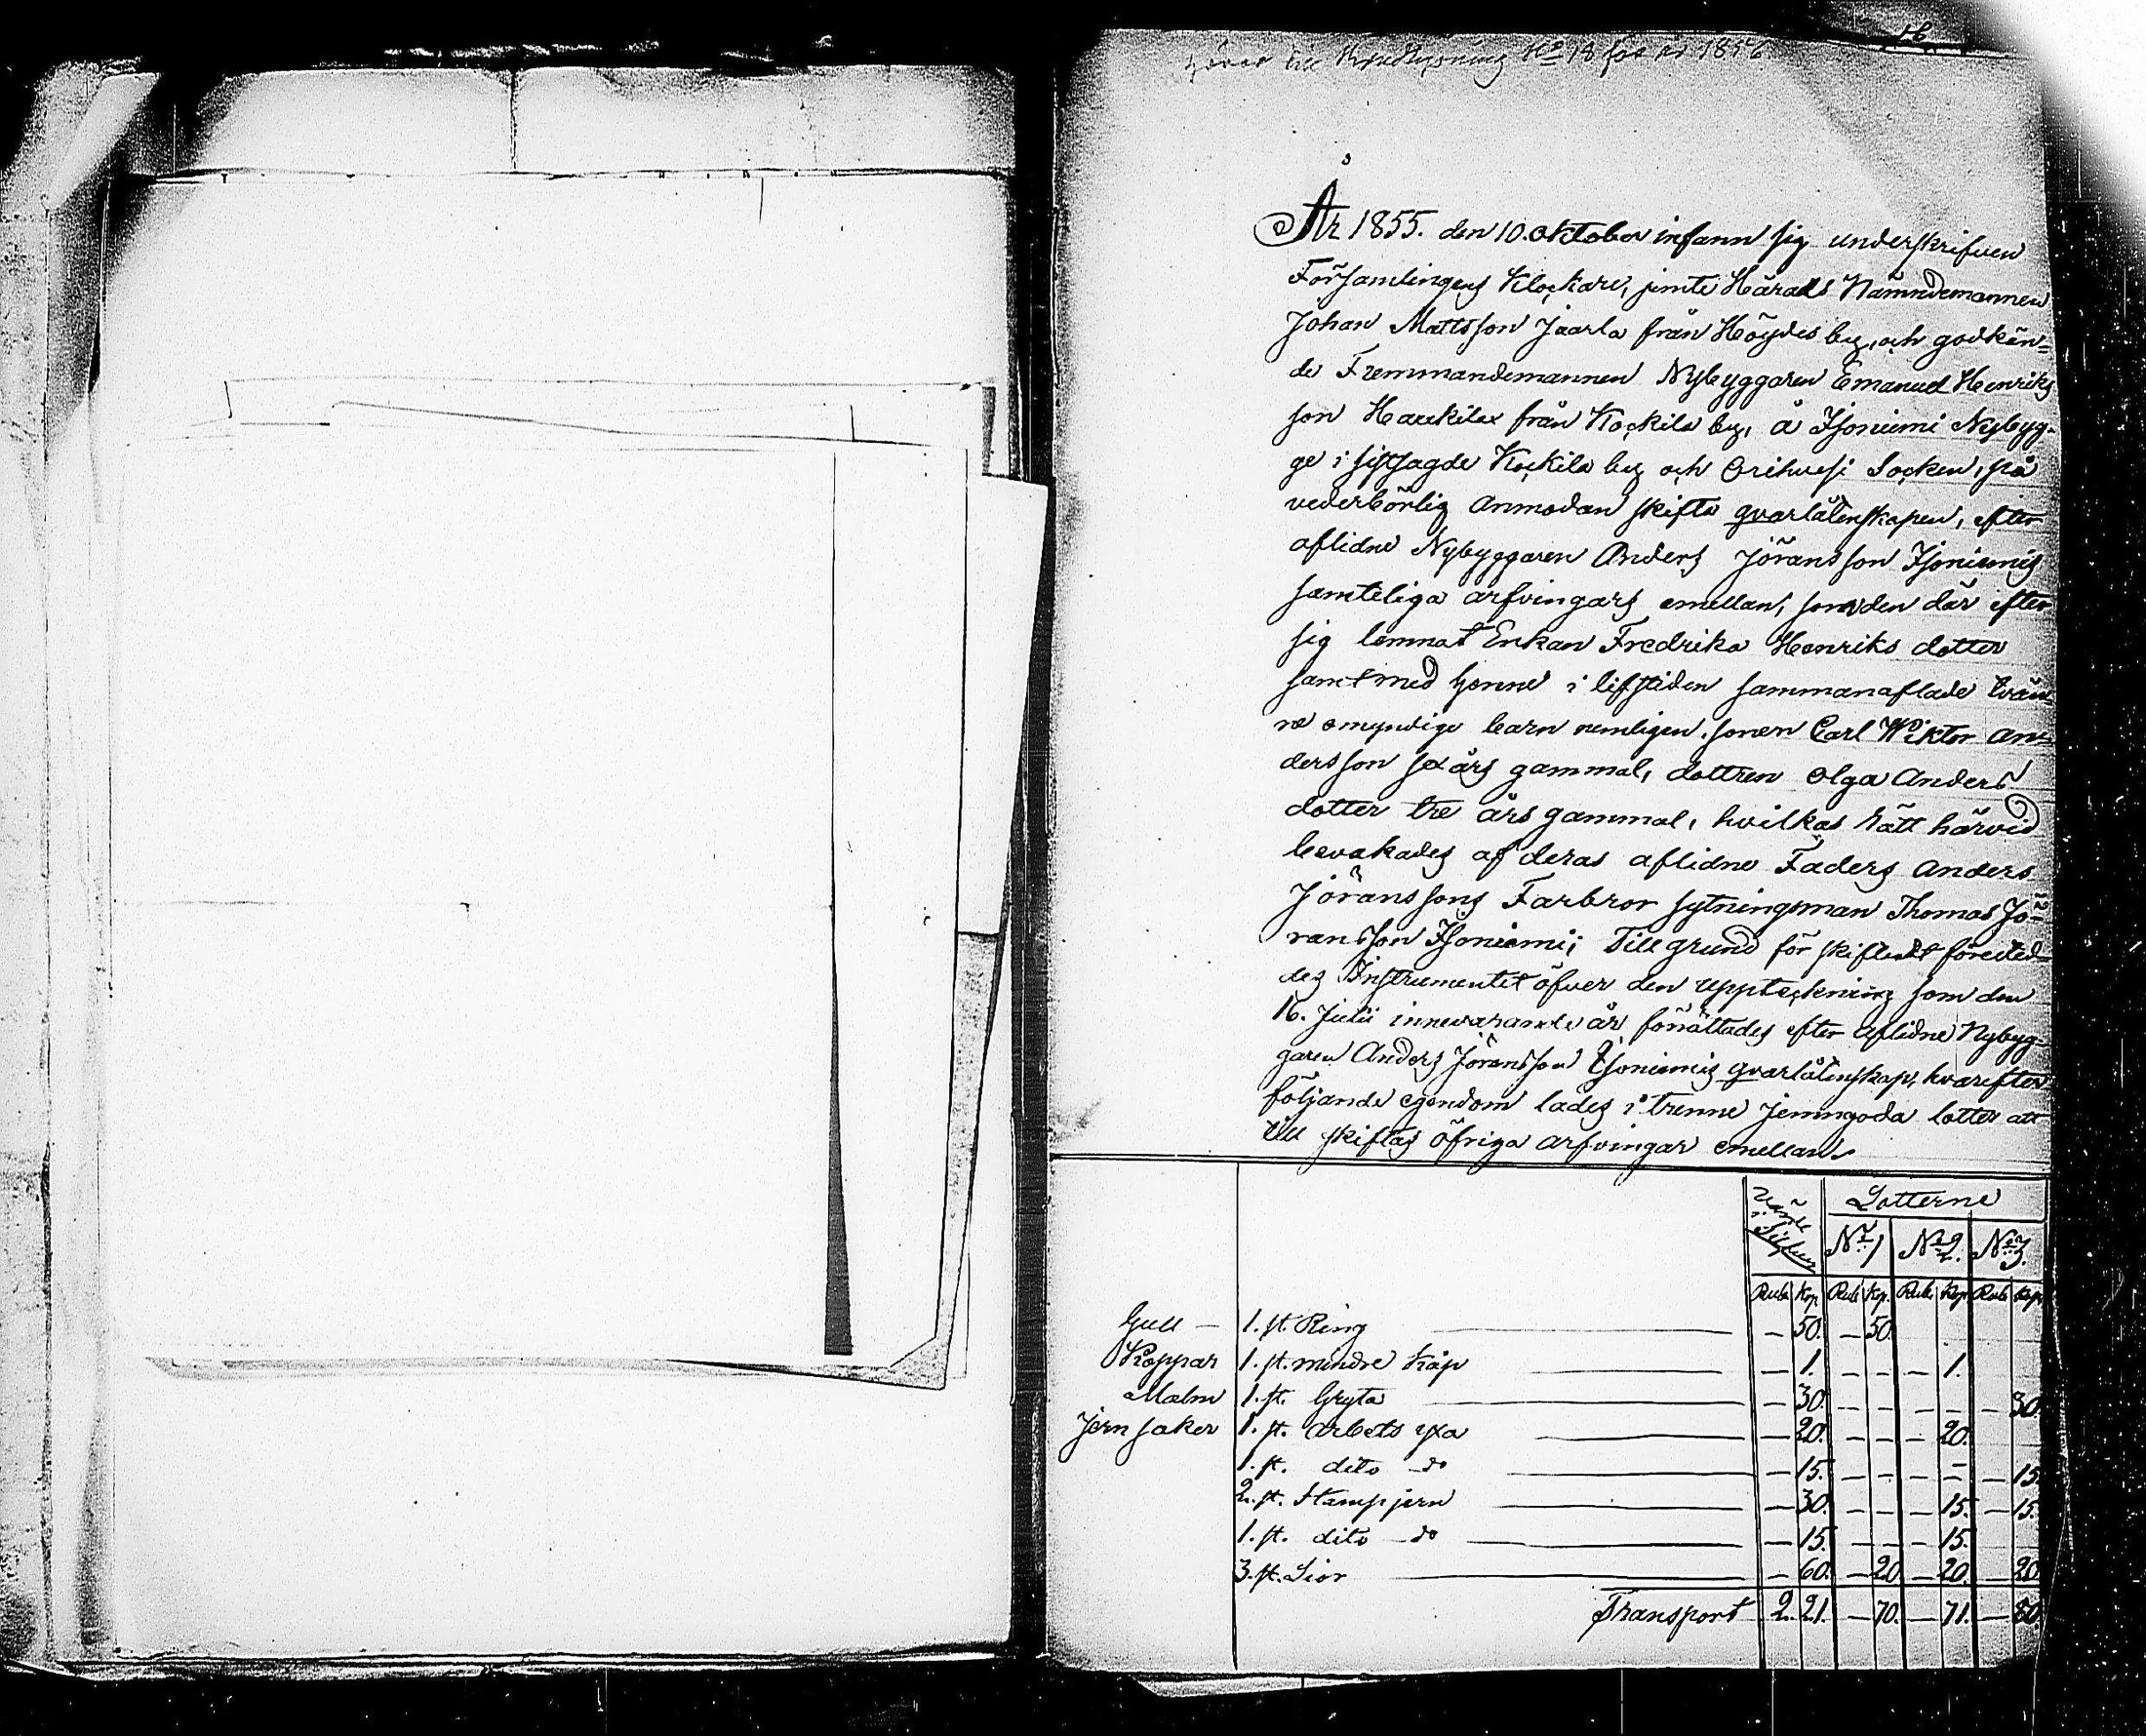 16
hörer till Kundtgöning No 18 för år 1856
År 1855. den 10. Oktober infann sig underskrifven
Församlingens Klockare, jemte Härads Nämndemannen
Johan Mattsson Jaarla från Höydes by, och godkän-
de Fremmandemannen Nybyggaren Emanuel Henriks
son Haukila från Kockila by, å Isoniemi Nybyg-
ge i sistsagde Kockila by och Orihvesi Socken, på
vederbörlig anmodan skifta qvarlåtenskapen, efter
aflidne Nybyggaren Anders Jöransson Isoniemis
samteliga arfvingars emellan, som den där efter
sig lemnat Enkan Fredrika Henriks dotter
samt med henne i lifstiden sammanaflade tvän-
ne omyndige barn nemligen. sonen Carl Wiktor An-
dersson sex års gammal, dottren Olga Anders
dotter tre års gammal, hvilkas rätt härvid
bevakades af deras aflidne Faders Anders
Jöranssons Farbror sytningsman Thomas Jö-
ransson Isoniemi; Till grund för skiftet företed-
des Instrumentet öfver den uppteckning som den
16. Julii innevarande år förrättades efter aflidne Nybyg-
garen Anders Jöransson Isoniemis qvarlåtenskap, hvarefter
följande egendom lades i trenne jemngoda lotter att
till skiftas öfriga arfvingar emellan.
Wärde i Silfver Lotterne
No 1 No 2. No 3.
Rub. Kop. Rub. Kop. Rub. Kop. Rub. Kop.
Gull — 1. st. Ring — 50. — 50.
Koppar 1. st. mindre Kåp — 1. — — — 1.
Malm 1. st. Gryta — 30. — — — — — 30.
Jern saker 1. st. arbets yxa — 20. — — — 20.
1. st. dito do — 15. — — — — — 15.
2. st. Stampjern — 30. — — — 15. — 15.
1. st. dito do — 15. — — — 15.
3. st. Lior — 60. — 20. — 20. — 20.
Transport 2. 21. — 70. — 71. — 80.